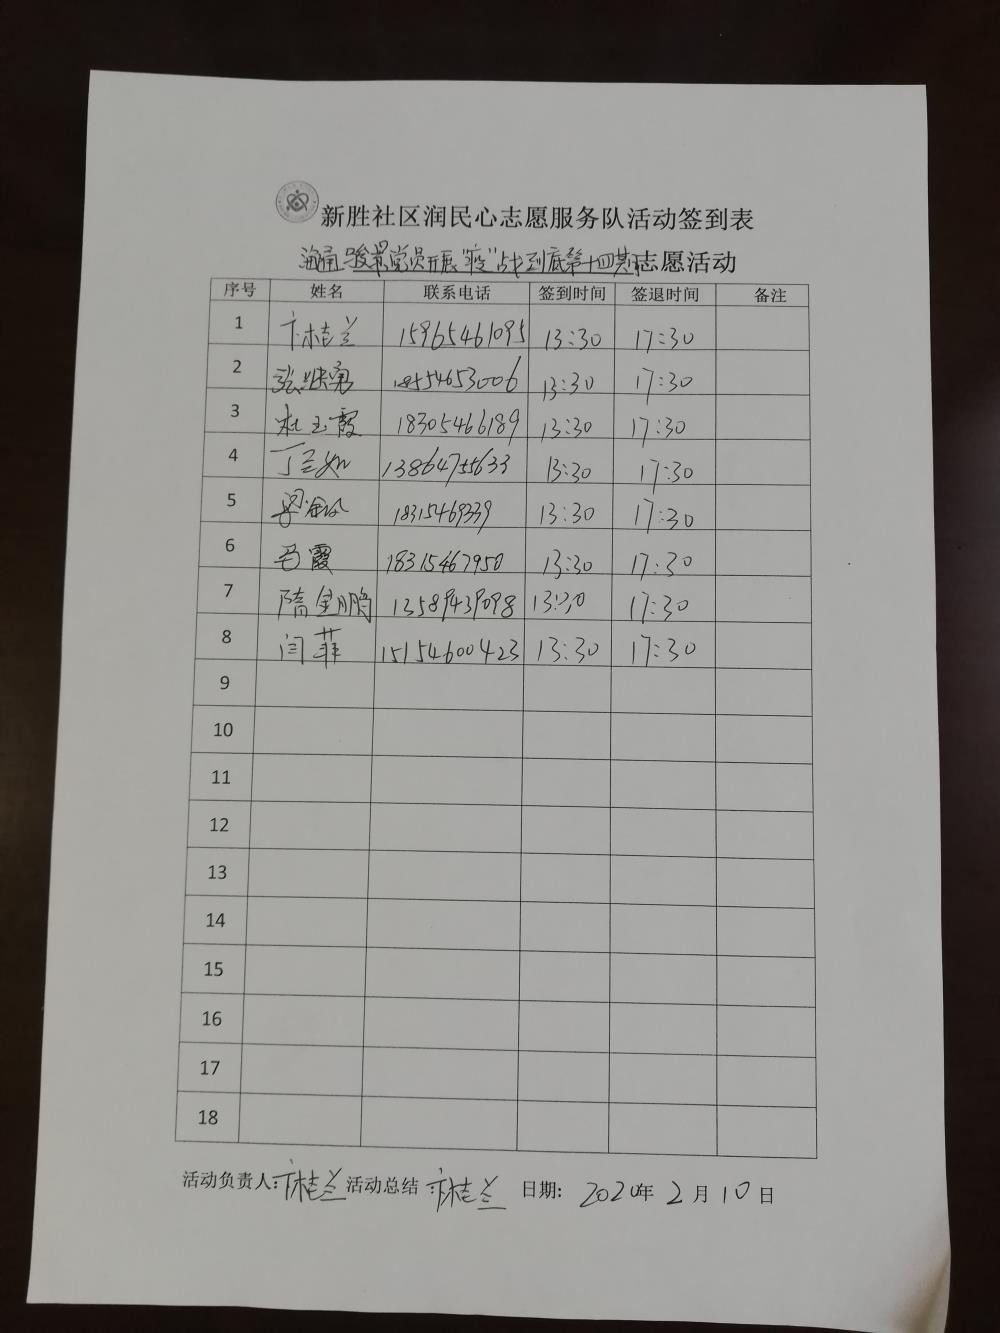 新胜社区润民心志愿服务队活动签到表
海通骏景党员开展"疫"战到底第十四期志愿活动
序号 姓名 联系电话 签到时间 签退时间 备注
1 卞桂兰 15965461095 13:30 17:30
2 张继勇 18554653006 13:30 17:30
3 杜玉霞 18305466189 13:30 17:30
4 丁兰如 13864755633 13:30 17:30
5 18315469339 13:30 17:30
6 马霞 18315467950 13:30 17:30
7 隋金鹏 13589439098 13:30 17:30
8 闫菲 15154600423 13:30 17:30
9
10
11
12
13
14
15
16
17
18
活动负责人:卞桂兰 活动总结 卞桂兰 日期: 2020年 2月10日